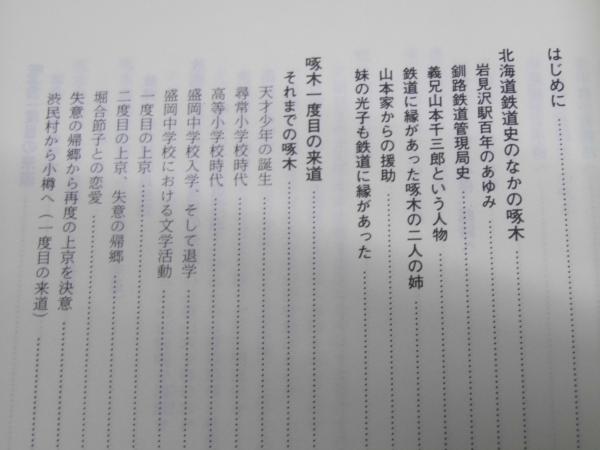 はじめに
北海道鉄道史のなかの啄木
岩見沢駅百年のあゆみ
釧路鉄道管理局史
義兄山本千三郎という人物
鉄道に縁があった啄木の二人の姉
山本家からの援助
妹の光子も鉄道に縁があった
啄木一度目の来道
それまでの啄木
天才少年の誕生
尋常小学校時代
高等小学校時代
盛岡中学校入学、そして退学
盛岡中学校における文学活動
一度目の上京
二度目の上京、失意の帰郷
堀合節子との恋愛
失意の帰郷から再度の上京を決意
渋民村から小樽へ(一度目の来道)